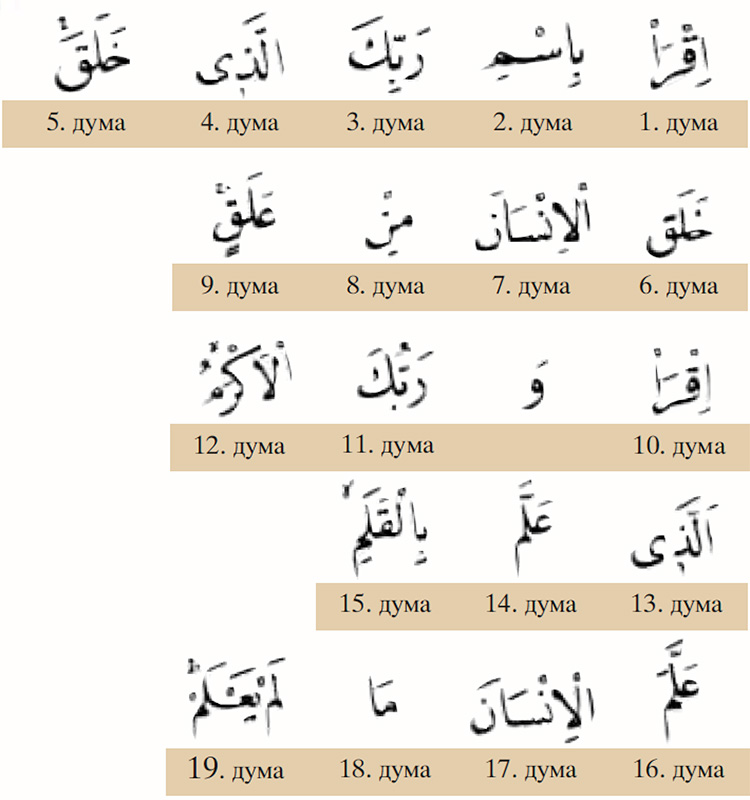 اِقْرَاْ بِاسْمِ رَبِّكَ الَّذ۪ى خَلَقَۚ
5. дума 4. дума 3. дума 2. дума 1. дума
خَلَقَ الْاِنْسَانَ مِنْ عَلَقٍۚ
9. дума 8. дума 7. дума 6. дума
اِقْرَاْ وَ رَبُّكَ الْاَكْرَمُۙ
12. дума 11. дума 10. дума
اَلَّذ۪ى عَلَّمَ بِالْقَلَمِۙ
15. дума 14. дума 13. дума
عَلَّمَ الْاِنْسَانَ مَا لَمْ يَعْلَمْۜ
19. дума 18. дума 17. дума 16. дума